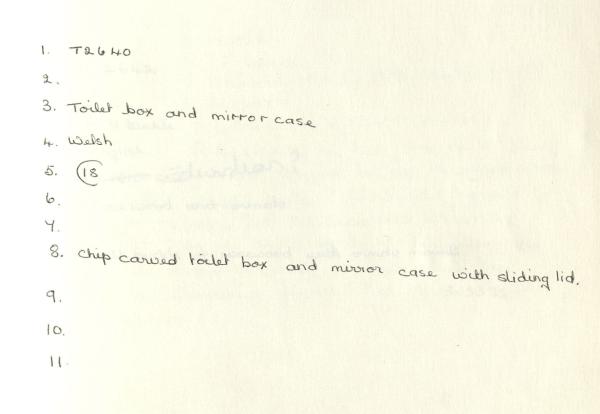 1. T2640
2.
3. Toilet box and mirror case
4. Welsh
5. 18
6.
7.
8. Chip carved toilet box and mirror case with sliding lid.
9.
10.
11.